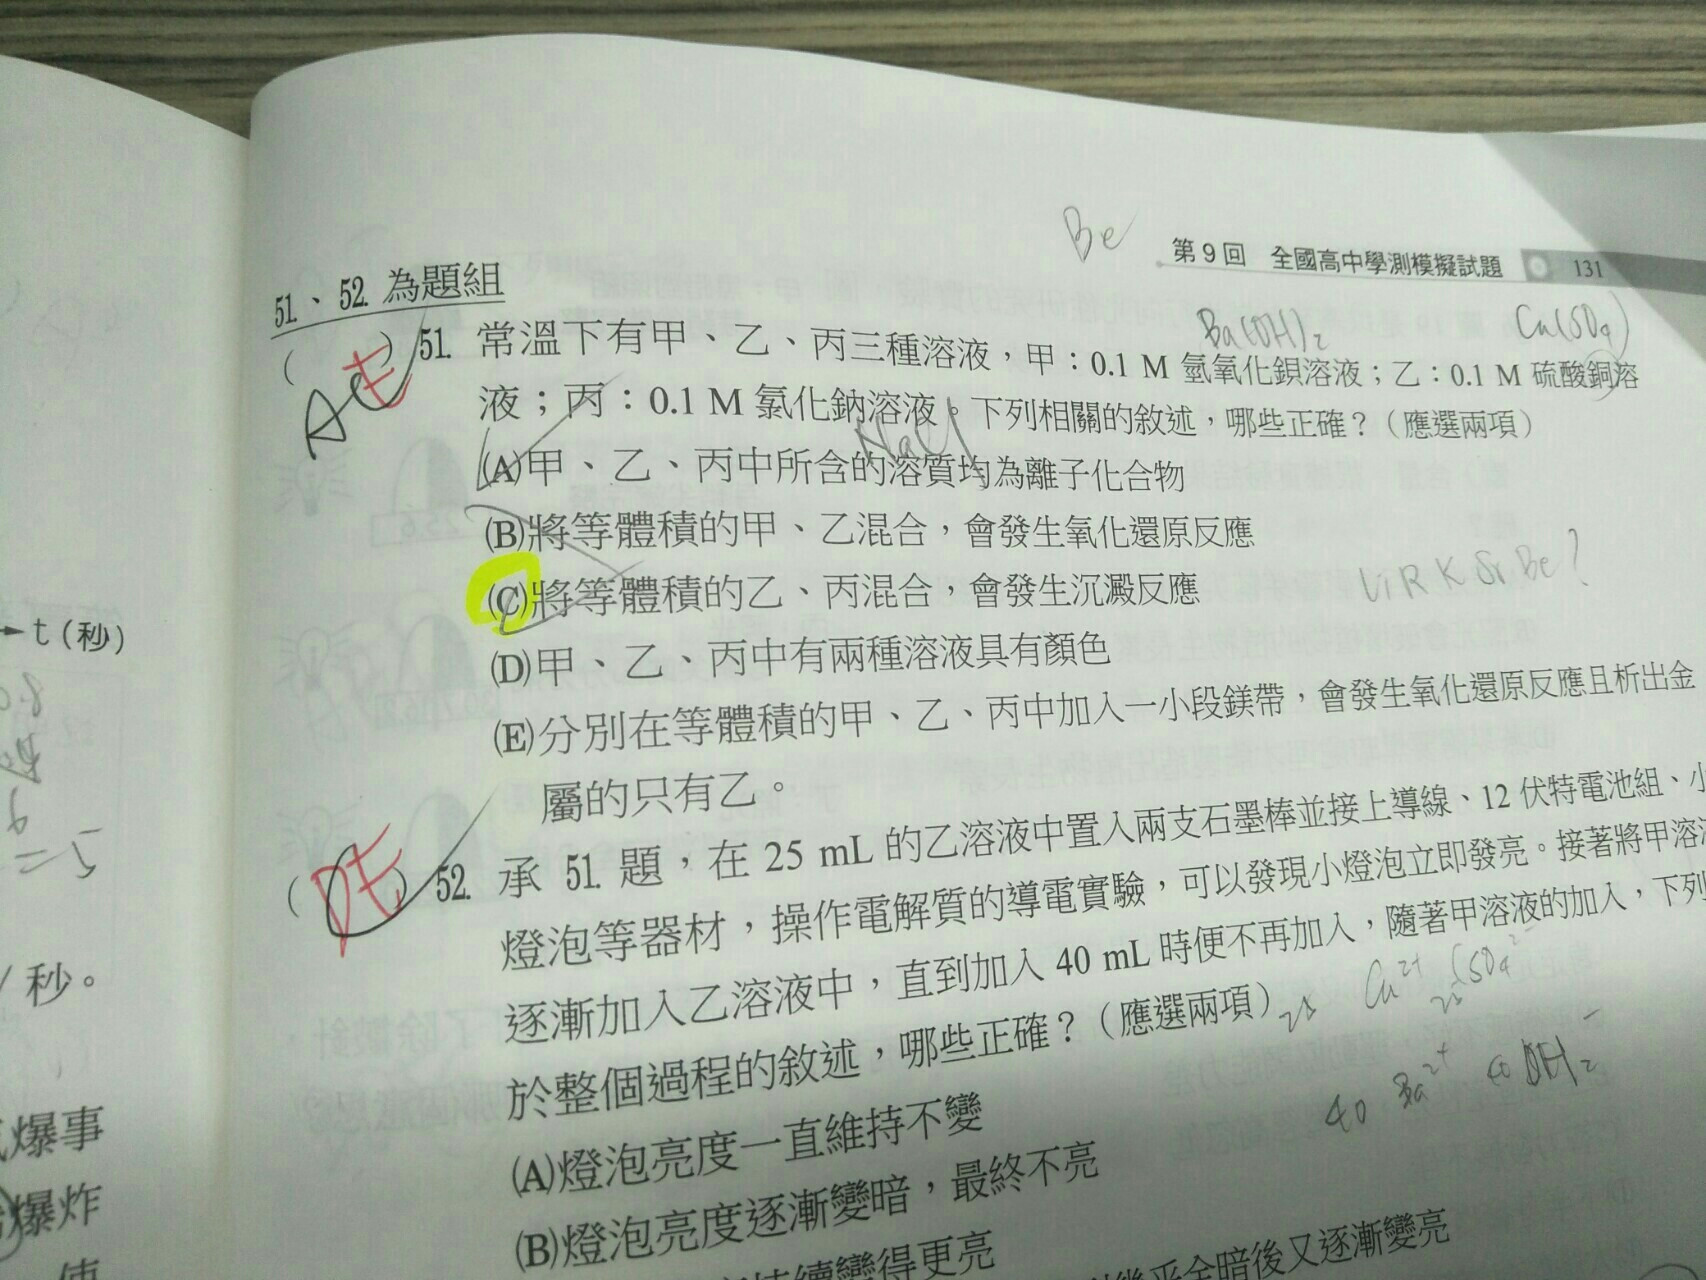 Be
第9回 全國高中學測模擬試題 131
51、52. 為題組
Ba(OH)₂ Cu(SO₄)
( ) 51. 常溫下有甲、乙、丙三種溶液，甲：0.1 M 氫氧化鋇溶液；乙：0.1 M 硫酸銅溶
AC
E
液；丙：0.1 M 氯化鈉溶液。下列相關的敘述，哪些正確？（應選兩項）
NaCl
(A)甲、乙、丙中所含的溶質均為離子化合物
(B)將等體積的甲、乙混合，會發生氧化還原反應
(C)將等體積的乙、丙混合，會發生沉澱反應
(D)甲、乙、丙中有兩種溶液具有顏色
(E)分別在等體積的甲、乙、丙中加入一小段鎂帶，會發生氧化還原反應且析出金
屬的只有乙。
( ) 52. 承 51. 題，在 25 mL 的乙溶液中置入兩支石墨棒並接上導線、12 伏特電池組、小
DE
燈泡等器材，操作電解質的導電實驗，可以發現小燈泡立即發亮。接著將甲溶
逐漸加入乙溶液中，直到加入 40 mL 時便不再加入，隨著甲溶液的加入，下列
Cu²⁺ SO₄²⁻
25
於整個過程的敘述，哪些正確？（應選兩項）
40 Ba²⁺
(A)燈泡亮度一直維持不變
(B)燈泡亮度逐漸變暗，最終不亮
持續變得更亮
乎全暗後又逐漸變亮
t (秒)
= 5
秒。
爆事
爆炸
使